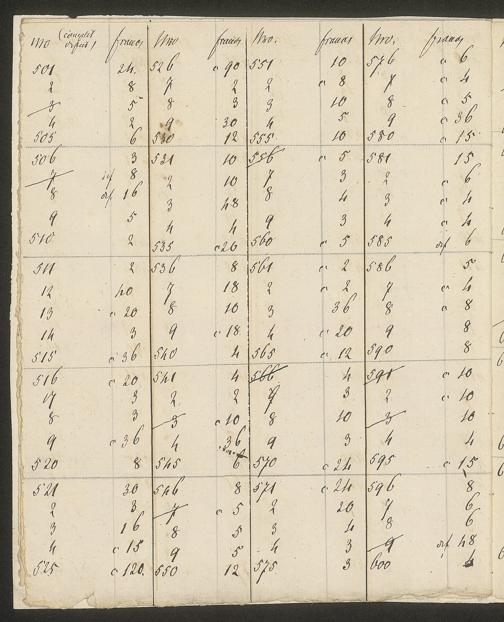 No (complet / defaut) francs No francs No. francs No. francs
501 24. 526 c 90 551 10 576 c 6
2 8 7 2 2 c 8 7 c 4
3 5 8 3 3 10 8 c 5
4 2 9 30 4 5 9 c 36
505 6 530 12 555 10 580 c 15
506 3 531 10 556 c 5 581 15
7 def 8 2 10 7 3 2 c 6
8 def 16 3 48 8 4 3 c 4
9 5 4 4 9 3 4 c 4
510 2 535 c 26 560 c 5 585 def 6
511 2 536 8 561 c 2 586 5
12 40 7 18 2 c 2 7 c 4
13 c 20 8 10 3 36 8 c 8
14 3 9 c 18 4 c 20 9 8
515 c 36 540 4 565 c 12 590 8
516 c 20 541 4 566 4 591 c 10
17 3 2 2 7 3 2 c 10
8 3 3 c 10 8 10 3 10
9 c 36 4 36 9 3 4 4
520 8 545 6 570 c 24 595 c 15
521 30 546 8 571 c 24 596 8
2 3 7 c 5 2 20 7 6
3 16 8 5 3 4 8 6
4 c 15 9 5 4 3 9 def 48
525 c 120. 550 12 575 3 600 4